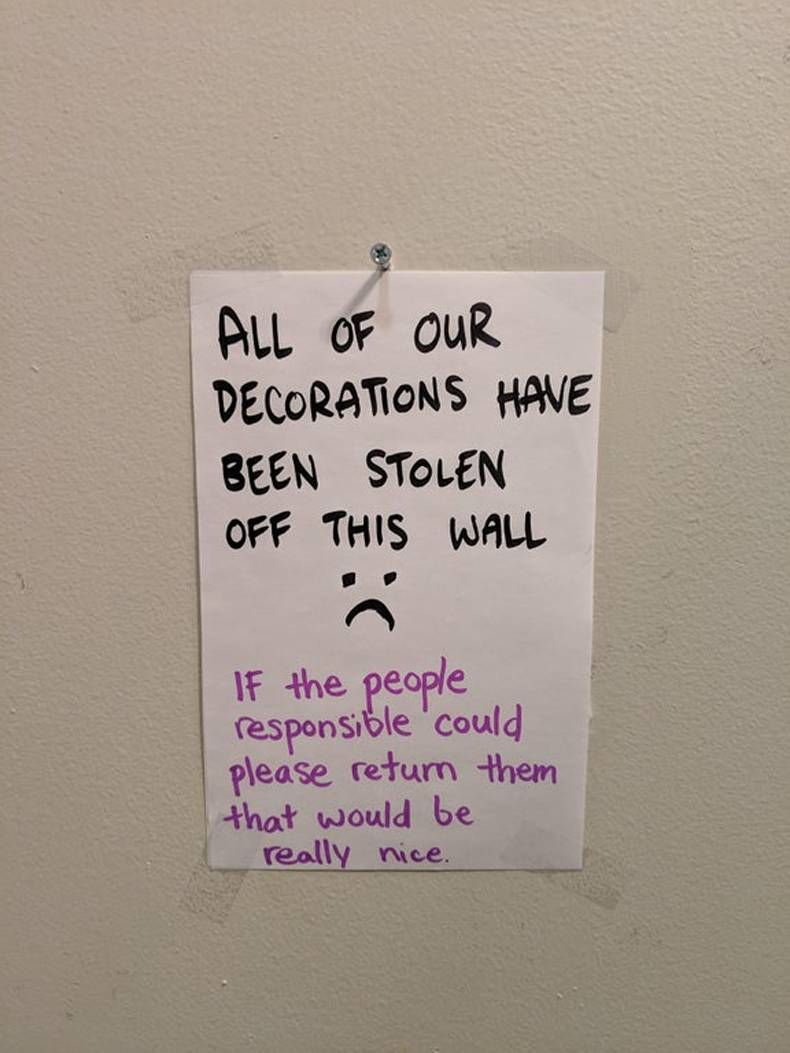 ALL OF OUR
DECORATIONS HAVE
BEEN STOLEN
OFF THIS WALL
IF the people
responsible could
please return them
that would be
really nice.